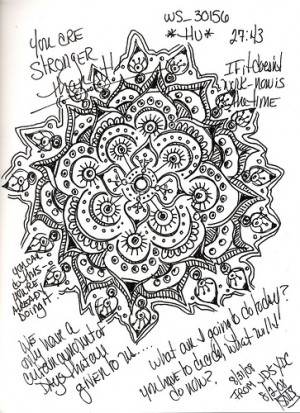 WS_30156
*HU*
27:43
You are
STRONGER
than
If it doesn't
work-now is
the time
you can
do this
you're
already
doing it
We
only have a
certain amount of
Days that are
given to us....
What am I going to do today?
you have to decide! What will I
do now?
8/2/08
FROM
8/2/08